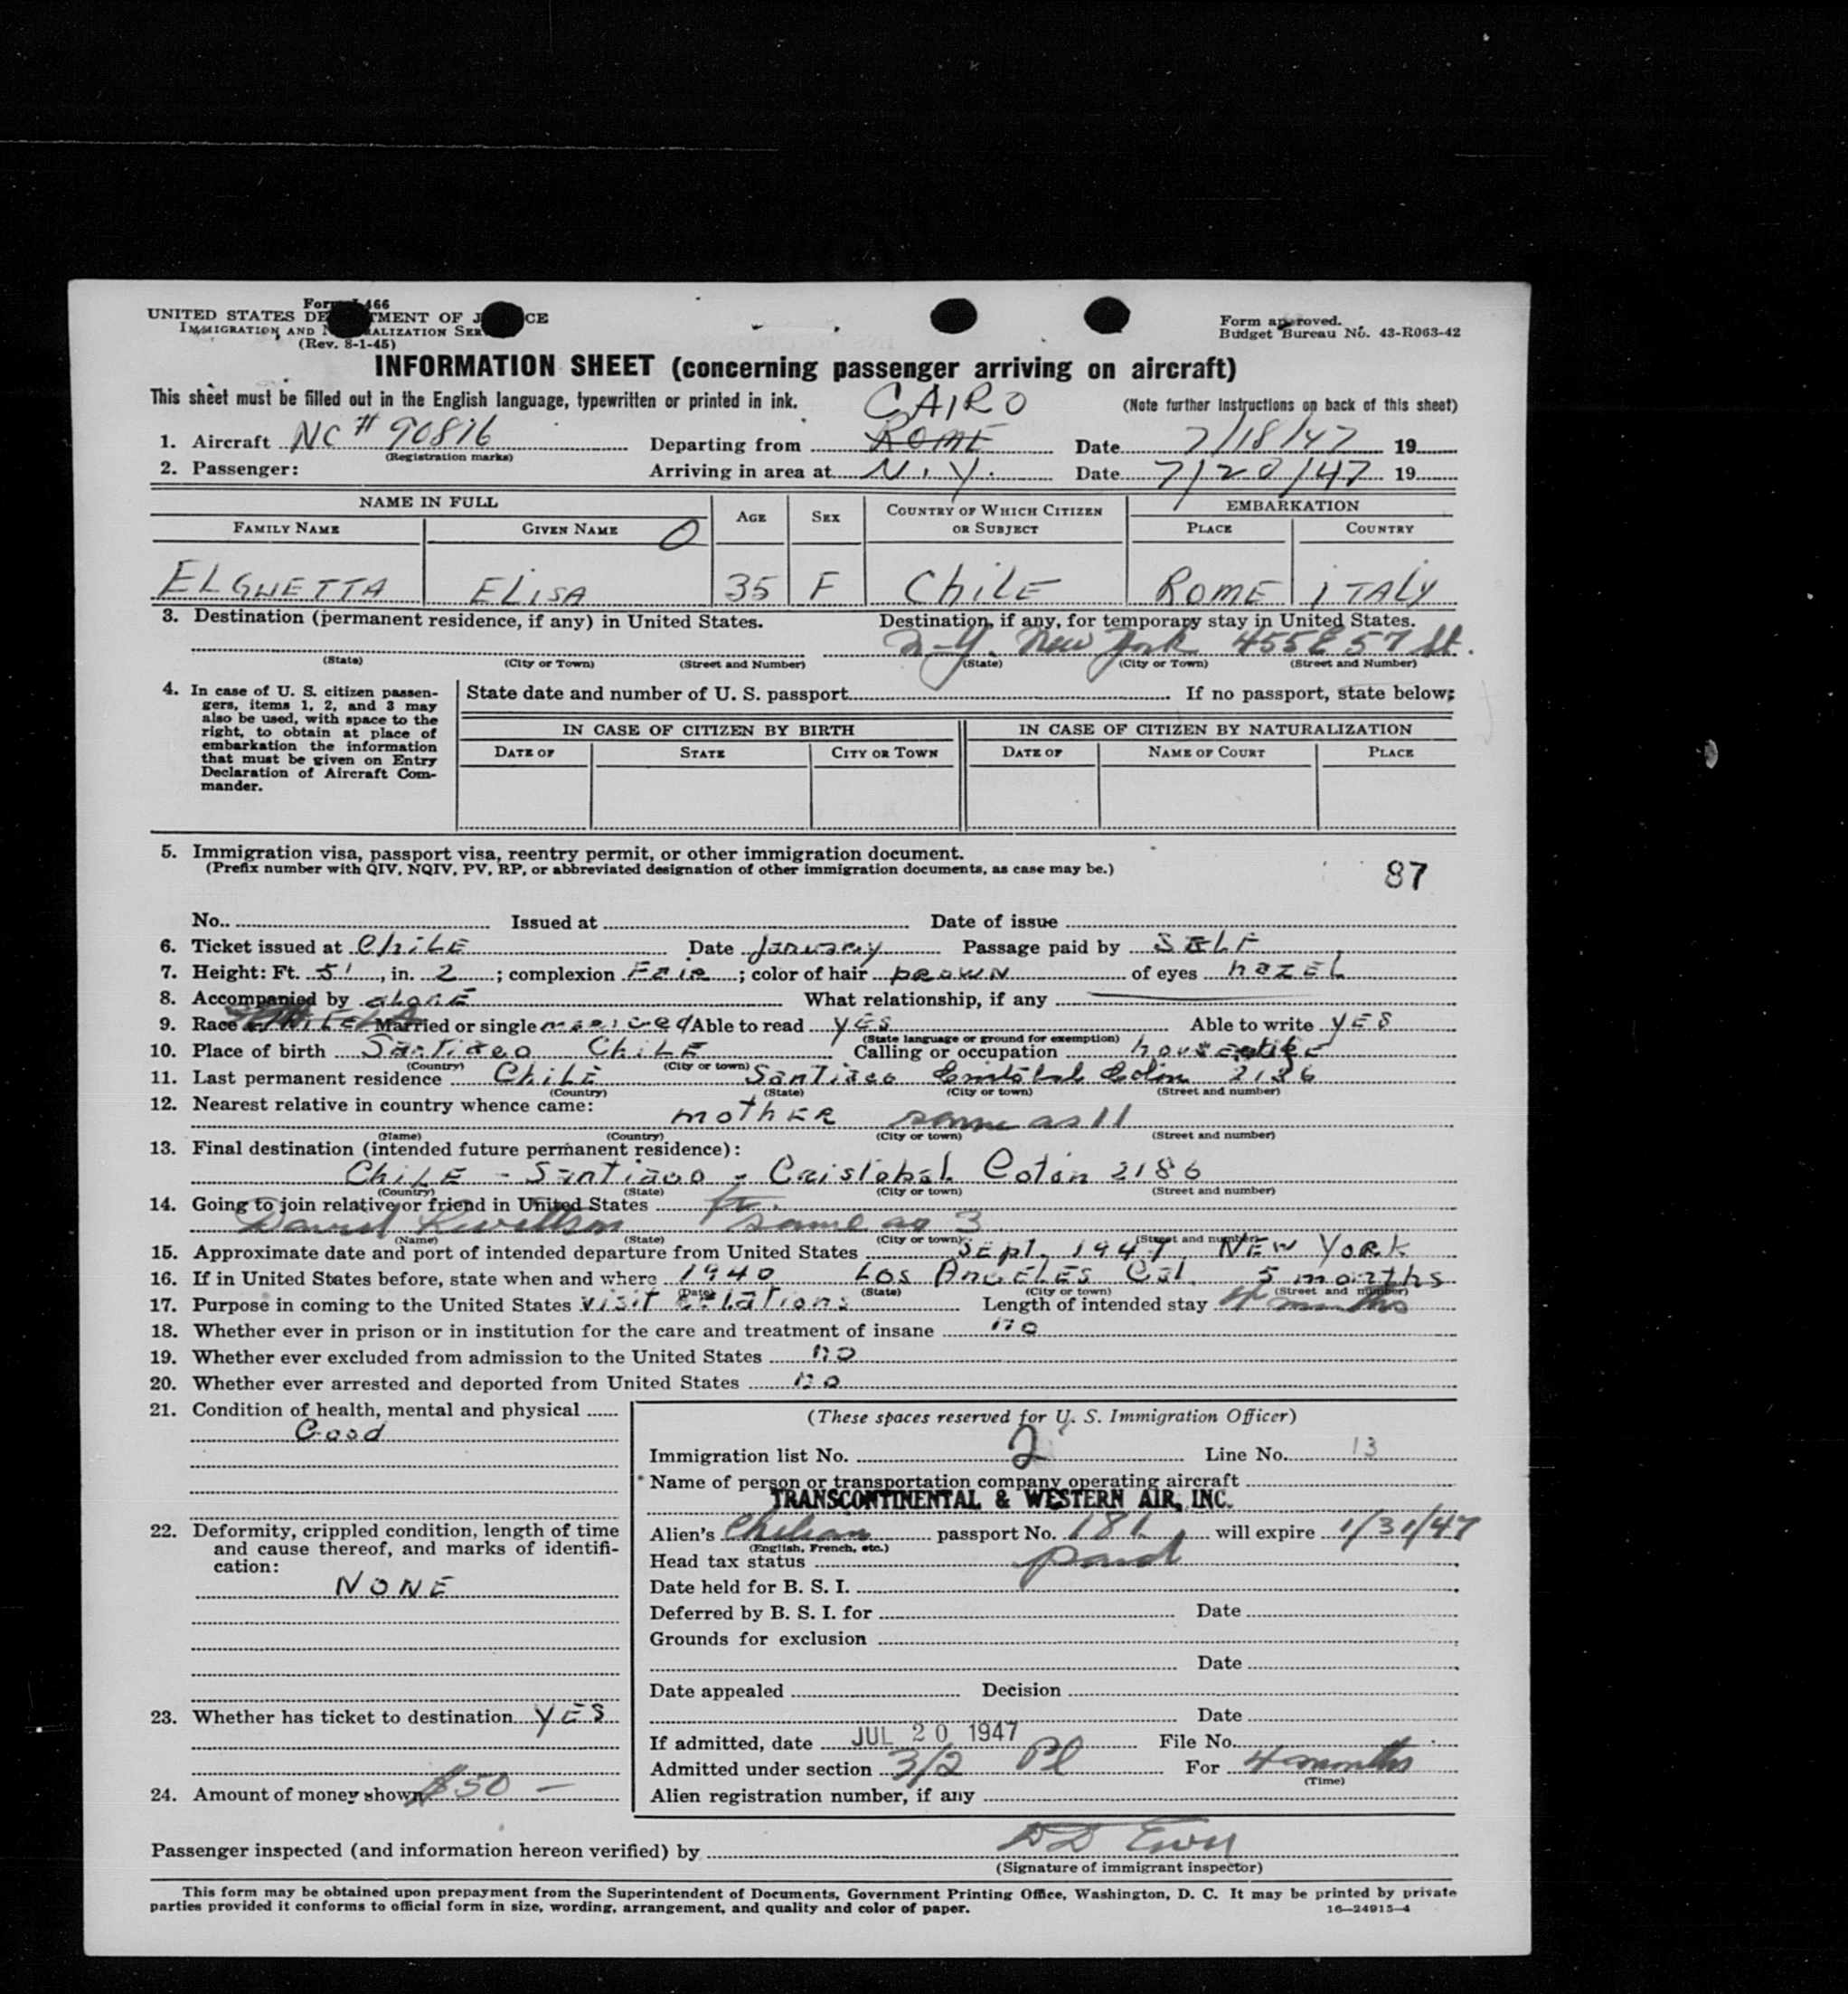 Form I-466
UNITED STATES DEPARTMENT OF JUSTICE
IMMIGRATION AND NATURALIZATION SERVICE
(Rev. 8-1-45)
Form approved.
Budget Bureau No. 43-R063-42
INFORMATION SHEET (concerning passenger arriving on aircraft)
This sheet must be filled out in the English language, typewritten or printed in ink. CAIRO (Note further instructions on back of this sheet)
1. Aircraft NC # 90816 Departing from ROME Date 7/18/47 19
(Registration marks)
2. Passenger: Arriving in area at N.Y. Date 7/20/47 19
NAME IN FULL AGE SEX COUNTRY OF WHICH CITIZEN OR SUBJECT EMBARKATION
FAMILY NAME GIVEN NAME O PLACE COUNTRY
ELGUETTA ELISA 35 F ChiLE ROME ITALY
3. Destination (permanent residence, if any) in United States. Destination, if any, for temporary stay in United States.
N-Y. New York 455 E 57 St.
(State) (City or Town) (Street and Number) (State) (City or Town) (Street and Number)
4. In case of U. S. citizen passen-
gers, items 1, 2, and 3 may
also be used, with space to the
right, to obtain at place of
embarkation the information
that must be given on Entry
Declaration of Aircraft Com-
mander.
State date and number of U. S. passport If no passport, state below:
IN CASE OF CITIZEN BY BIRTH IN CASE OF CITIZEN BY NATURALIZATION
DATE OF STATE CITY OR TOWN DATE OF NAME OF COURT PLACE
5. Immigration visa, passport visa, reentry permit, or other immigration document.
(Prefix number with QIV, NQIV, PV, RP, or abbreviated designation of other immigration documents, as case may be.) 87
No. Issued at Date of issue
6. Ticket issued at ChiLE Date January Passage paid by SELF
7. Height: Ft. 5', in. 2; complexion FaiR; color of hair bROWN of eyes hazEL
8. Accompanied by aLonE What relationship, if any
9. Race Married or single married Able to read YES Able to write YES
(State language or ground for exemption)
10. Place of birth Santiago ChiLE Calling or occupation housewife
(Country) (City or town)
11. Last permanent residence ChiLE Santiago Cristobal Colon 2186
(Country) (State) (City or town) (Street and number)
12. Nearest relative in country whence came: mothER same as 11
(Name) (Country) (City or town) (Street and number)
13. Final destination (intended future permanent residence):
ChiLE - Santiago - Cristobal Colon 2186
(Country) (State) (City or town) (Street and number)
14. Going to join relative or friend in United States fr.
David same as 3
(Name) (State) (City or town) (Street and number)
15. Approximate date and port of intended departure from United States Sept. 1947 NEW YORK
16. If in United States before, state when and where 1940 Los ANGELES Cal. 5 months
(Date) (State) (City or town) (Street and number)
17. Purpose in coming to the United States visit relations Length of intended stay 4 months
18. Whether ever in prison or in institution for the care and treatment of insane no
19. Whether ever excluded from admission to the United States no
20. Whether ever arrested and deported from United States no
21. Condition of health, mental and physical
Good
22. Deformity, crippled condition, length of time
and cause thereof, and marks of identifi-
cation:
NONE
23. Whether has ticket to destination YES
24. Amount of money shown $50 -
(These spaces reserved for U. S. Immigration Officer)
Immigration list No. 2 Line No. 13
* Name of person or transportation company operating aircraft
TRANSCONTINENTAL & WESTERN AIR, INC.
Alien's Chilean passport No. 181 will expire 1/31/47
(English, French, etc.)
Head tax status paid
Date held for B. S. I.
Deferred by B. S. I. for Date
Grounds for exclusion
Date
Date appealed Decision
Date
If admitted, date JUL 20 1947 File No.
Admitted under section 3/2 Pl For 4 months
(Time)
Alien registration number, if any
Passenger inspected (and information hereon verified) by
(Signature of immigrant inspector)
This form may be obtained upon prepayment from the Superintendent of Documents, Government Printing Office, Washington, D. C. It may be printed by private
parties provided it conforms to official form in size, wording, arrangement, and quality and color of paper. 16—24915-4